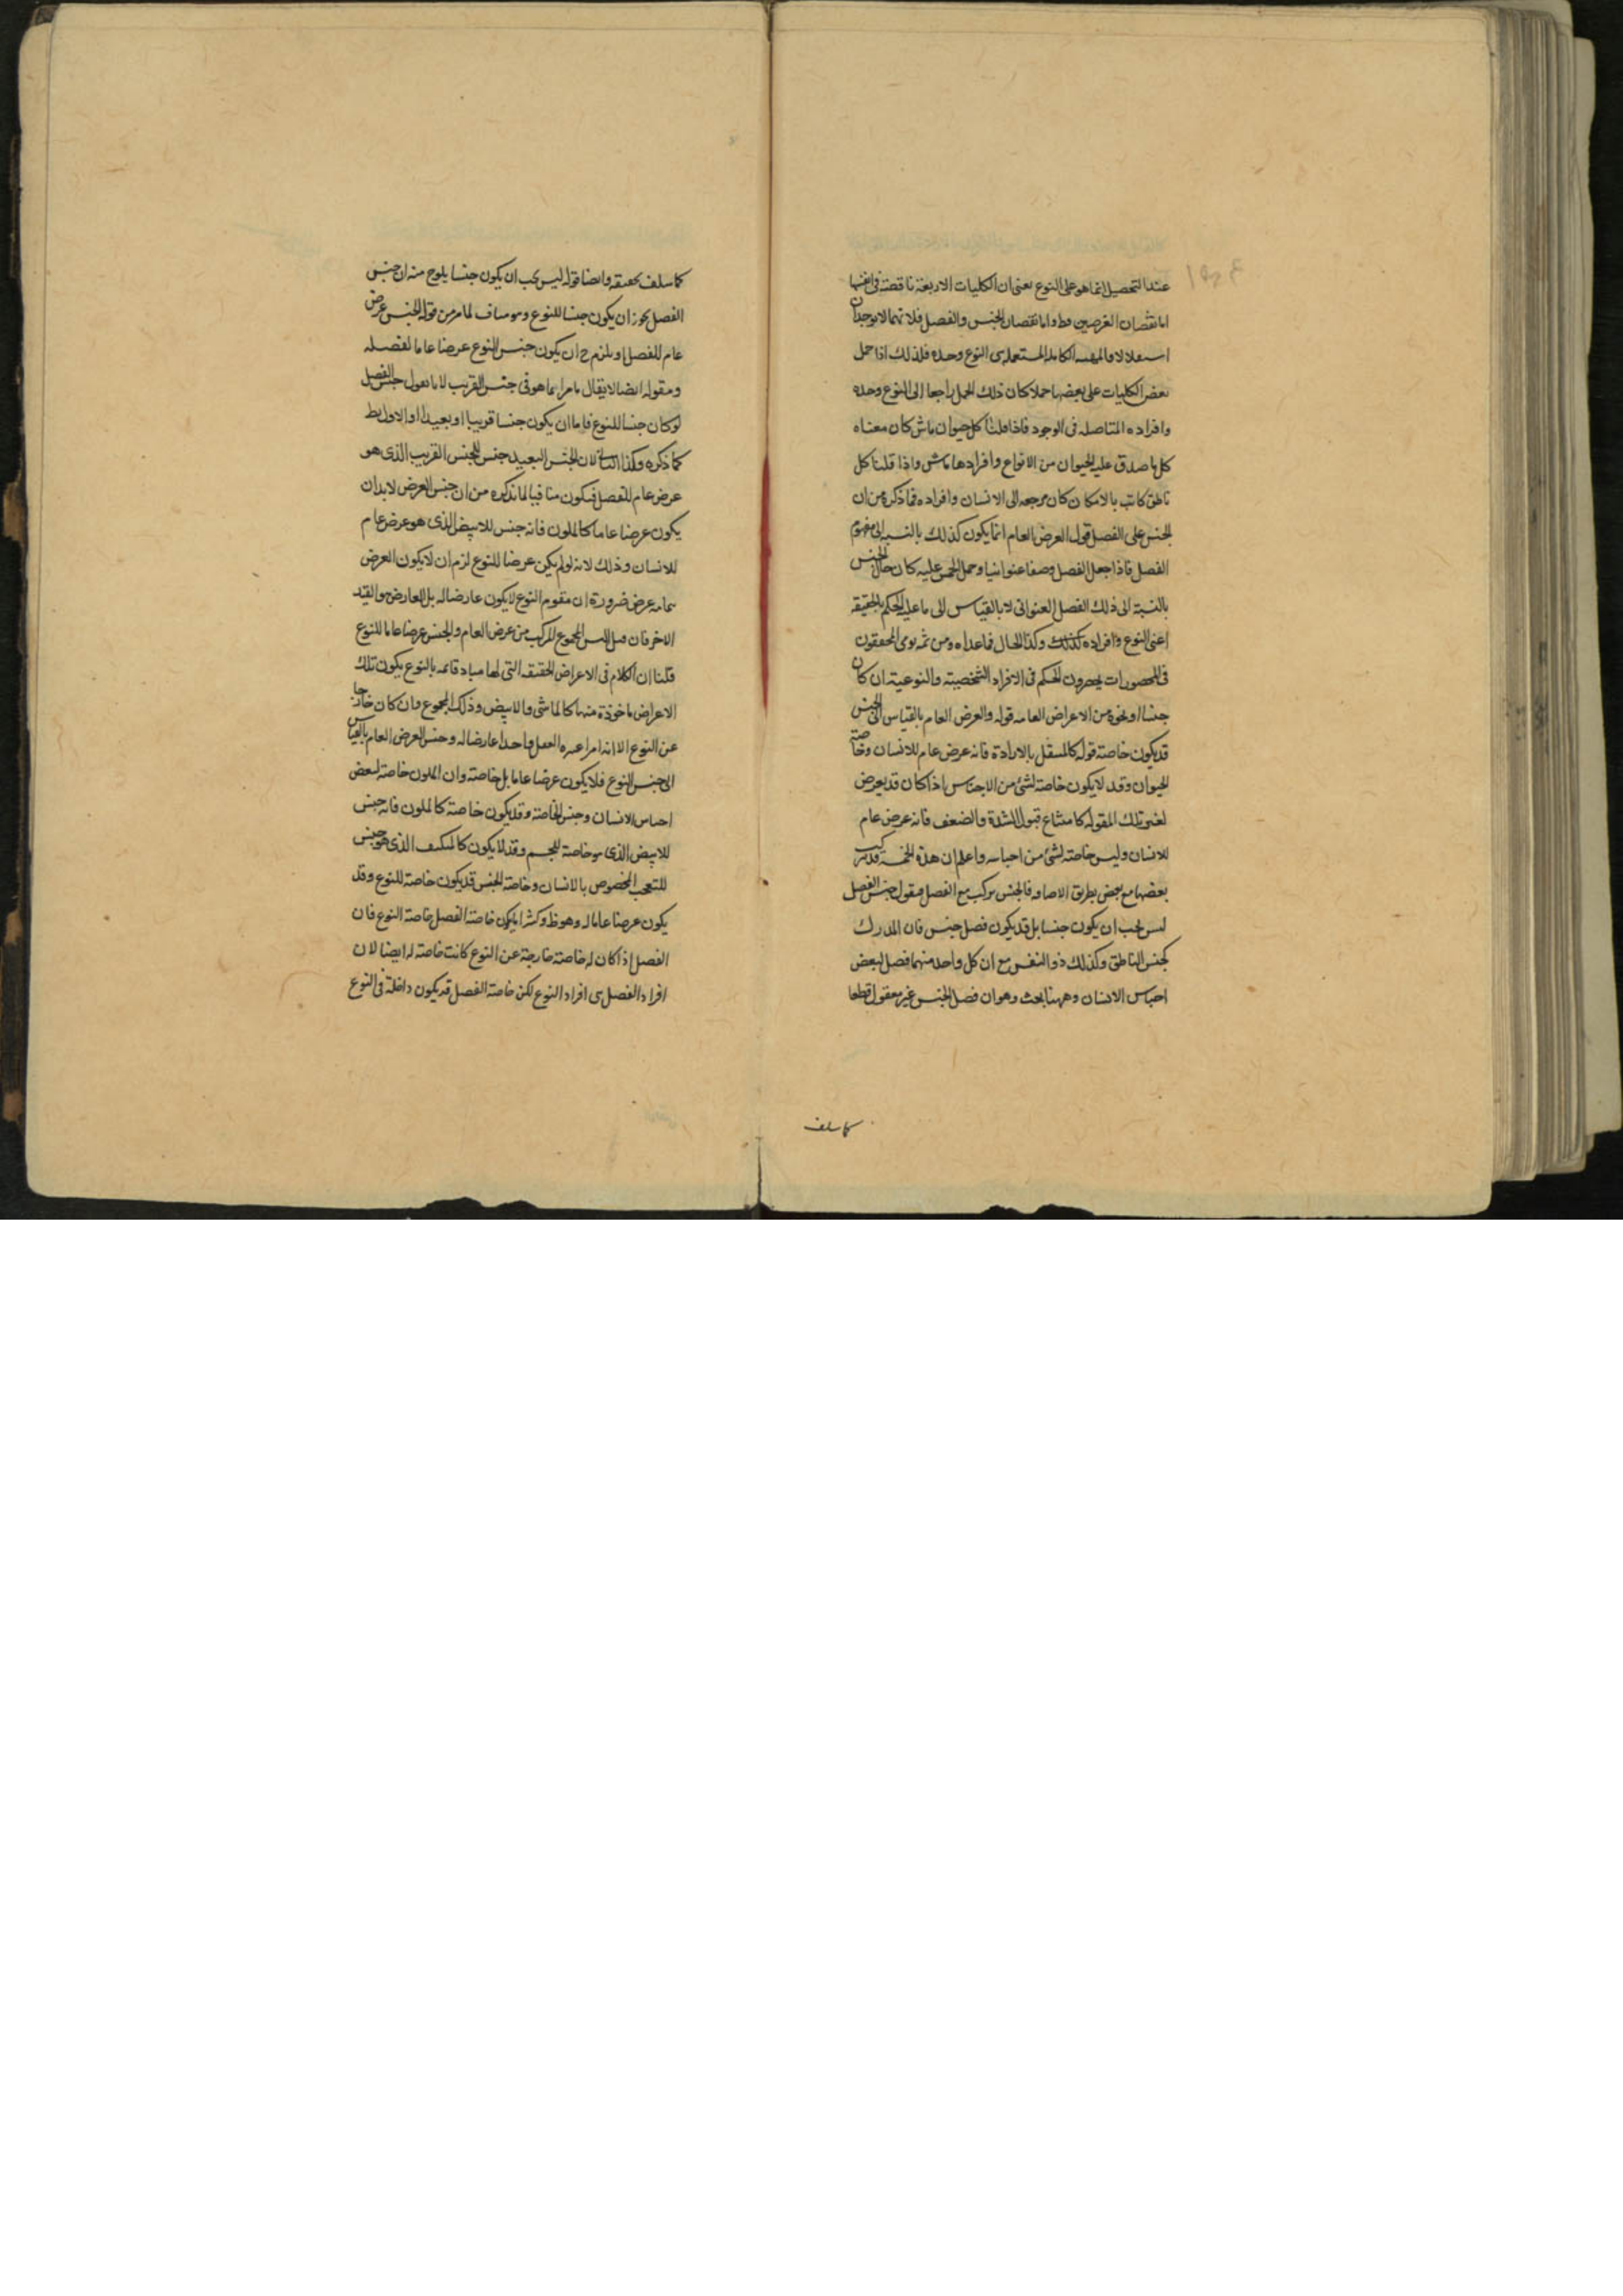 عند التحصيل انما هو على النوع يعنى ان الكليات الاربعة ناقصة فى انفسها
اما نقصان العرضين فظ واما نقصان الجنس والفصل فلانهما لا يوجدان
استقلالا والمهية الكاملة المستعملة هى النوع وحده فلذلك اذا حمل
بعض الكليات على بعضها حملا كان ذلك الحمل راجعا الى النوع وحده
وافراده المتاصلة فى الوجود فاذا قلنا كل حيوان ماش كان معناه
كل ما صدق عليه الحيوان من الانواع وافرادها ماش واذا قلنا كل
ناطق كاتب بالامكان كان مرجعه الى الانسان وافراده فما ذكره من ان
الجنس على الفصل قول العرض العام انما يكون كذلك بالنسبة الى مفهوم
الفصل فاذا جعل الفصل وصفا عنوانيا وحمل الجنس عليه كان حال الجنس
بالنسبة الى ذلك الفصل العنوانى لا بالقياس الى ما عليه الحكم بالحقيقة
اعنى النوع وافراده كذلك وكذا الحال فيما عداه ومن ثمه نرى المحققون
فى المحصورات يحصرون الحكم فى الافراد الشخصية والنوعية ان كان
جنسا او نحوه من الاعراض العامه قوله والعرض العام بالقياس الى الجنس
قد يكون خاصة قوله كالمنتقل بالارادة فانه عرض عام للانسان وخاصة
الحيوان وقد لا يكون خاصة لشئ من الاجناس اذا كان قد يعرض
لغير تلك المقوله كامتناع قبول الشدة والضعف فانه عرض عام
للانسان وليس خاصة لشئ من اجناسه واعلم ان هذه الخمسة قد يتركب
بعضها مع بعض بطريق الاضافه فالجنس يركب مع الفصل فيقول جنس الفصل
ليس يجب ان يكون جنسا بل قد يكون فصل جنس فان المدرك
كجنس الناطق وكذلك ذو النفس مع ان كل واحد منهما فصل لبعض
اجناس الانسان وههنا بحث وهو ان فصل الجنس غير معقول قطعا
كما سلف
كما سلف تحقيقه وايضا قوله ليس يجب ان يكون جنسا يلوح منه ان جنس
الفصل يجوز ان يكون جنسا للنوع وهو مناف لما مر من قوله الجنس عرض
عام للفصل او يلزم ح ان يكون جنس النوع عرضا عاما لفصله
ومقوله ايضا لا يقال ما مر انما هو فى جنس القريب لانا نقول جنس الفصل
لو كان جنسا للنوع فاما ان يكون جنسا قريبا او بعيدا والاول بط
كما ذكره وكذا الثانى لان الجنس البعيد جنس للجنس القريب الذى هو
عرض عام للفصل فيكون منافيا لما نذكره من ان جنس العرض لا بد ان
يكون عرضا عاما كالملون فانه جنس للابيض الذى هو عرض عام
للانسان وذلك لانه لو لم يكن عرضا للنوع لزم ان لا يكون العرض
عرض ضرورة ان مقوم النوع لا يكون عارضا له بل العارض هو القيد
الاخر فان قيل اليس المجموع المركب من عرض العام والجنس عرضا عاما للنوع
قلنا ان الكلام فى الاعراض الحقيقه التى لها مباد قائمه بالنوع يكون تلك
الاعراض ماخوذة منها كالماشى والابيض وذلك المجموع وان كان خارجا
عن النوع الا انه امر اعتبره العقل واحدا عارضا له وجنس العرض العام بالقياس
الى جنس النوع فلا يكون عرضا عاما بل خاصة وان الملون خاصة لبعض
اجناس الانسان وجنس الخاصة وقد يكون خاصة كالملون فانه جنس
للابيض الذى هو خاصة للجسم وقد لا يكون كالمتكيف الذى هو جنس
للتعجب المخصوص بالانسان وخاصة الجنس قد يكون خاصة للنوع وقد
يكون عرضا عاما له وهو ظ وكثيرا ما يكون خاصة الفصل خاصة النوع فان
الفصل اذا كان له خاصة خارجة عن النوع كانت خاصة له ايضا لان
افراد الفصل هى افراد النوع لكن خاصة الفصل قد يكون داخلة فى النوع